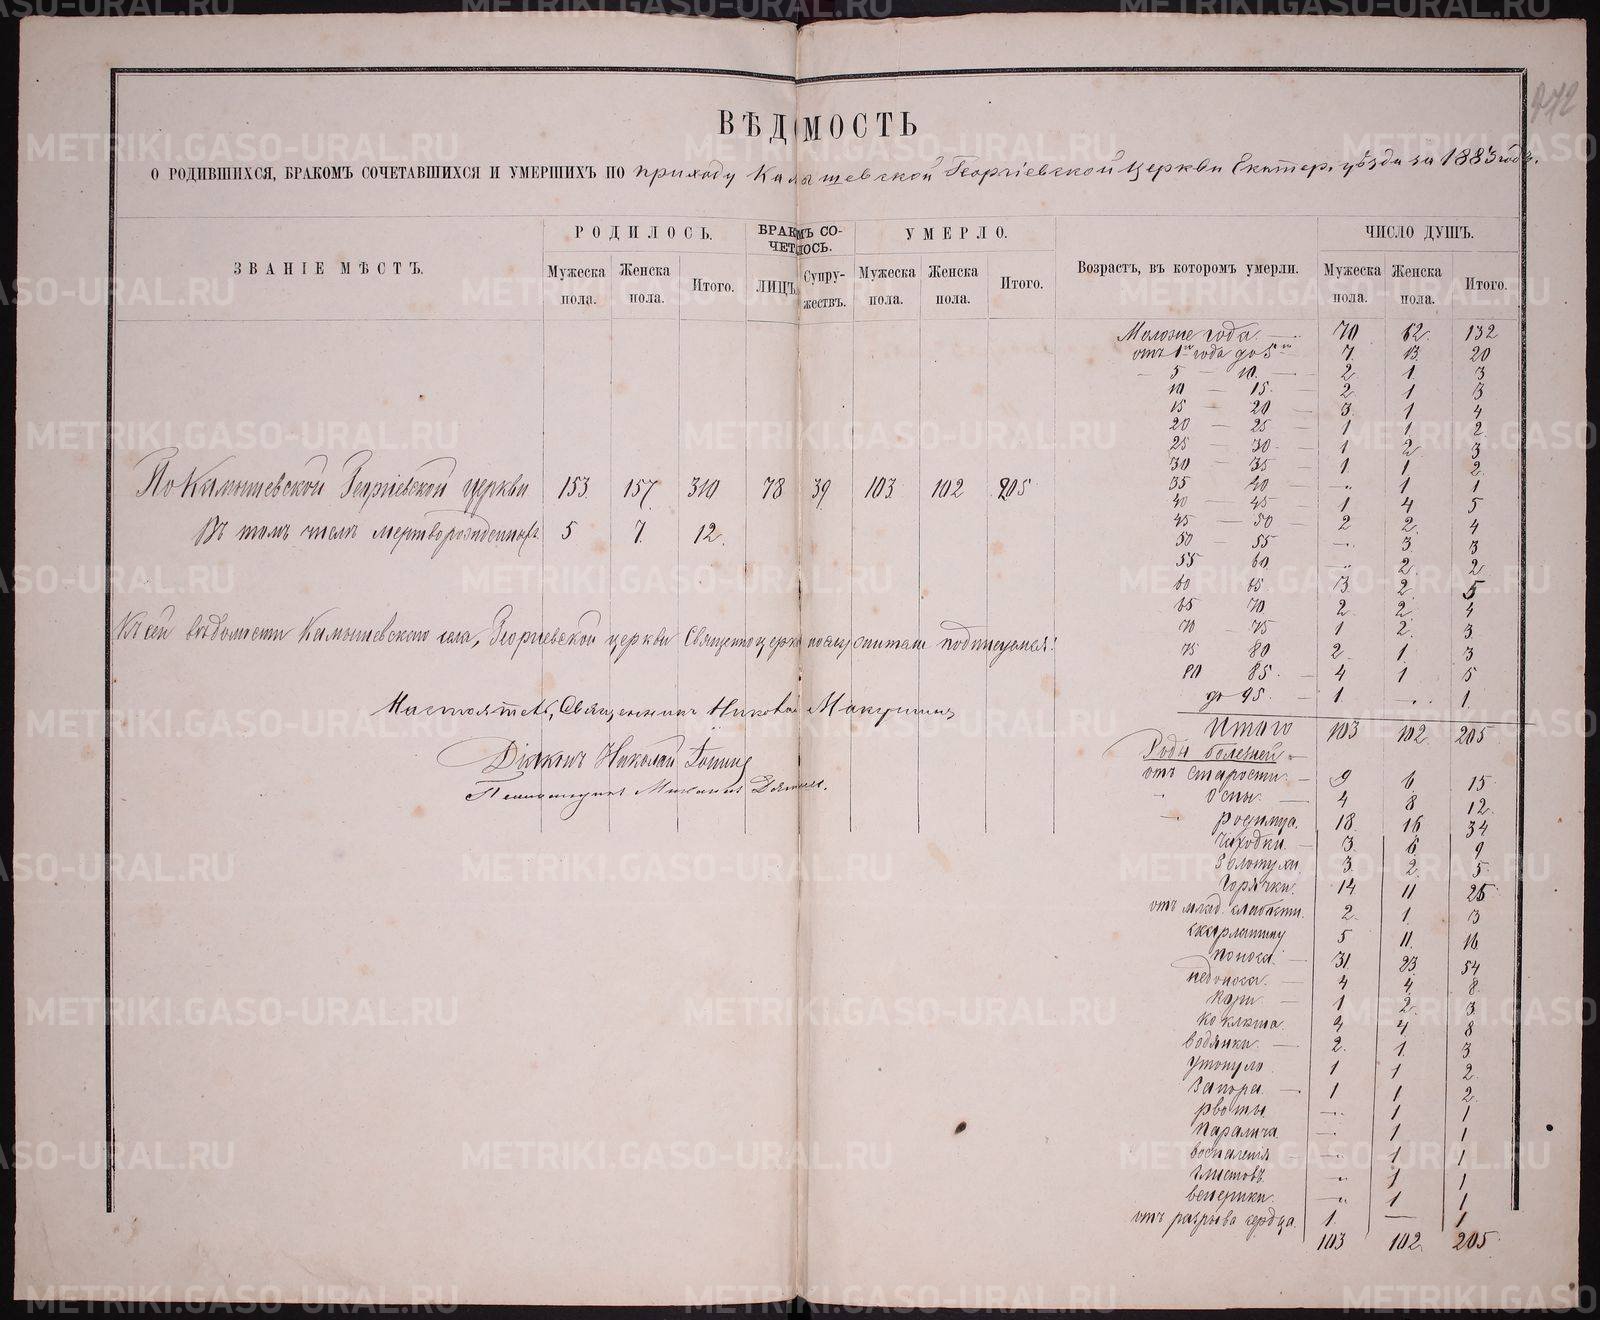 ВѢДОМОСТЬ
О РОДИВШИХСЯ, БРАКОМЪ СОЧЕТАВШИХСЯ И УМЕРШИХЪ ПО приходу Камышевской Георгіевской церкви Екатер. уѣзда за 1883 годъ.
ЗВАНІЕ МѢСТЪ. РОДИЛОСЬ. БРАКОМЪ СОЧЕТАЛОСЬ. УМЕРЛО. Возрастъ, въ которомъ умерли. ЧИСЛО ДУШЪ.
Мужеска пола. Женска пола. Итого. ЛИЦЪ. Супружествъ. Мужеска пола. Женска пола. Итого. Мужеска пола. Женска пола. Итого.
По Камышевской Георгіевской церкви 153 157 310 78 39 103 102 205
Въ томъ числѣ мертворожденныхъ 5 7 12
Къ сей вѣдомости Камышевскаго села, Георгіевской церкви Священноцерковнослужители подписуемся:
Настоятель, Священникъ Макушинъ
Діаконъ Николай
Псаломщикъ
Моложе года — 70 62 132
отъ 1 года до 5 — 7 13 20
5 — 10 — 2 1 3
10 — 15 — 2 1 3
15 — 20 — 3 1 4
20 — 25 — 1 1 2
25 — 30 — 1 2 3
30 — 35 — 1 1 2
35 40 — „ 1 1
40 — 45 — 1 4 5
45 — 50 — 2 2 4
50 — 55 — 3 3
55 60 — 2 2
60 65 3 2 5
65 70 2 2 4
70 75 1 2 3
75 80 2 1 3
80 85 — 4 1 5
до 95 — 1 .. 1
Итого 103 102 205
Роды болезней
отъ старости — 9 6 15
„ Оспы — 4 8 12
родимца 18 16 34
Чахотки — 3 6 9
Золотухи 3 2 5
Горячки 14 11 25
отъ млад. слабости 2 1 3
скарлатину 5 11 16
поноса — 31 23 54
недоноса — 4 4 8
Кори — 1 2 3
коклюша 4 4 8
водянки — 2 1 3
утонуло 1 1 2
Запора — 1 1 2
рвоты — 1 1
паралича — 1 1
воспаленія — 1 1
глистовъ „ 1 1
венерики — „ 1 1
отъ разрыва сердца 1 — 1
103 102 205
METRIKI.GASO-URAL.RU